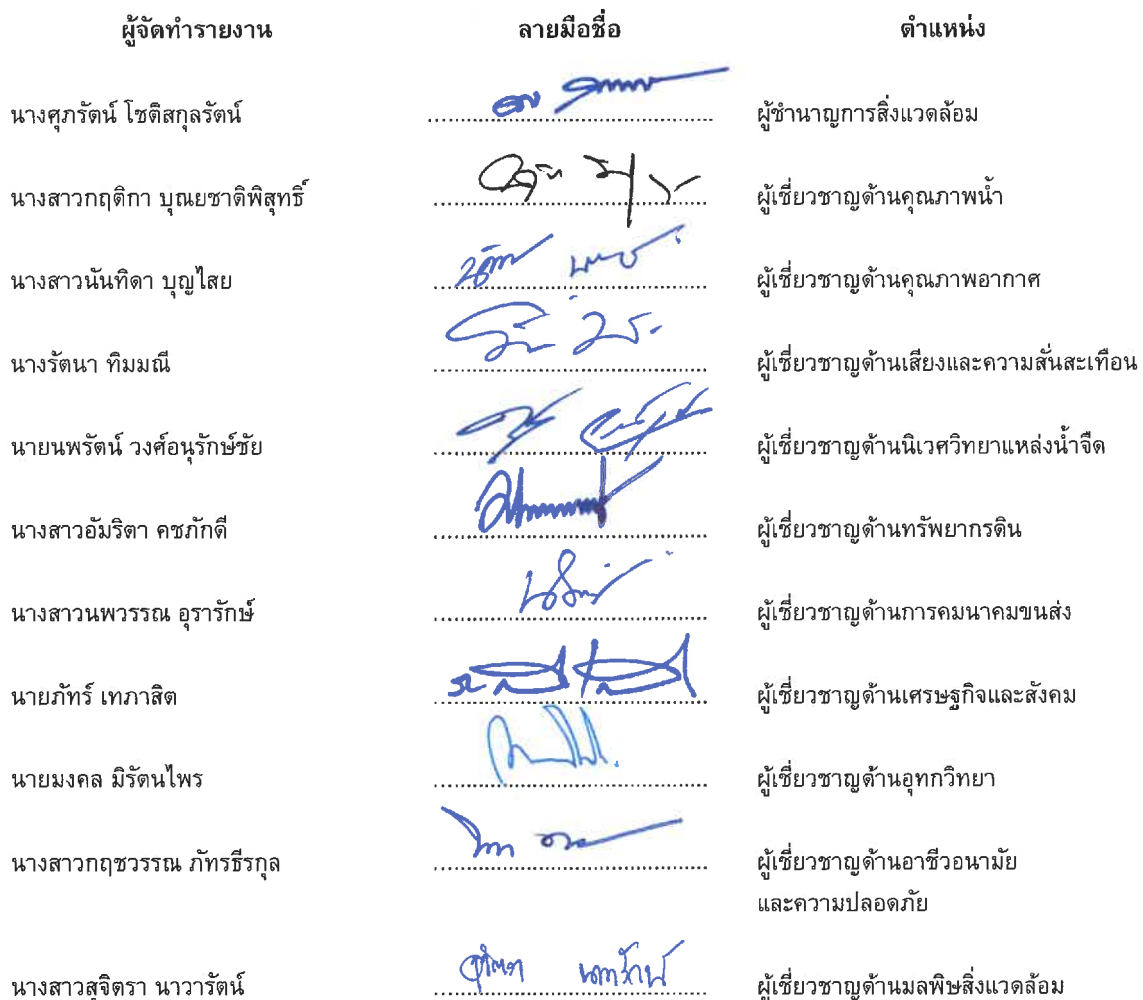 ผู้จัดทำรายงาน ลายมือชื่อ ตำแหน่ง
นางศุภรัตน์ โชติสกุลรัตน์ ผู้ชำนาญการสิ่งแวดล้อม
นางสาวกฤติกา บุณยชาติพิสุทธิ์ ผู้เชี่ยวชาญด้านคุณภาพน้ำ
นางสาวนันทิดา บุญไสย ผู้เชี่ยวชาญด้านคุณภาพอากาศ
นางรัตนา ทิมมณี ผู้เชี่ยวชาญด้านเสียงและความสั่นสะเทือน
นายนพรัตน์ วงศ์อนุรักษ์ชัย ผู้เชี่ยวชาญด้านนิเวศวิทยาแหล่งน้ำจืด
นางสาวอัมริตา คชภักดี ผู้เชี่ยวชาญด้านทรัพยากรดิน
นางสาวนพวรรณ อุรารักษ์ ผู้เชี่ยวชาญด้านการคมนาคมขนส่ง
นายภัทร์ เทภาสิต ผู้เชี่ยวชาญด้านเศรษฐกิจและสังคม
นายมงคล มิรัตนไพร ผู้เชี่ยวชาญด้านอุทกวิทยา
นางสาวกฤชวรรณ ภัทรธีรกุล ผู้เชี่ยวชาญด้านอาชีวอนามัย
และความปลอดภัย
นางสาวสุจิตรา นาวารัตน์ ผู้เชี่ยวชาญด้านมลพิษสิ่งแวดล้อม